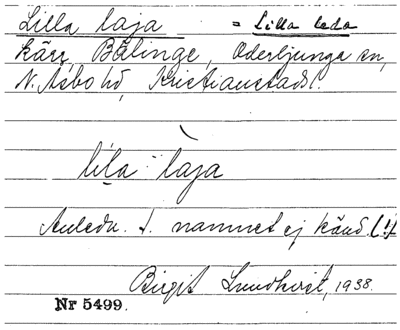 Lilla laja = Lilla leda
kärr, Bälinge, Oderljunga sn,
N. Åsbo hd, Kristianstads l.
lila laja
Anledn. t. namnet ej känd. (!)
Birgit Lundkvist, 1938.
Nr 5499.